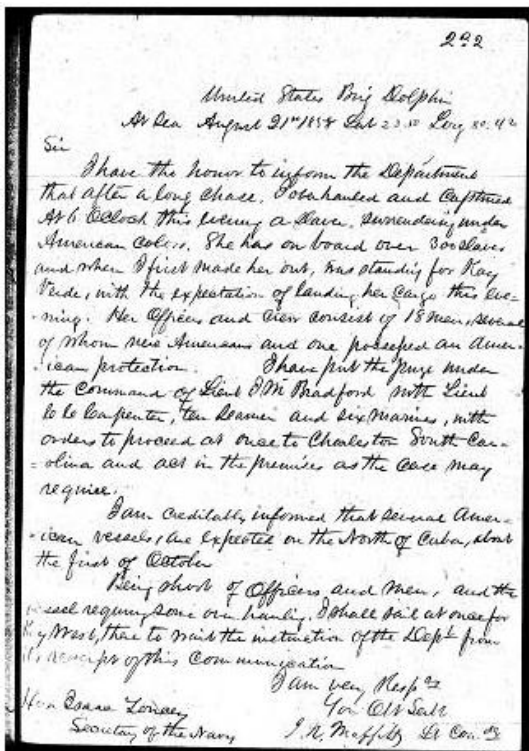 292
United States Brig Dolphin
At Sea August 21st 1858 Lat 23.50 Long 80.42
Sir
I have the honor to inform the Department
that after a long chase, I overhauled and Captured
At 6 OClock this evening a slaver, surrendering under
American colors. She has on board over 300 slaves
and when I first made her out, was standing for Kay
Verde, with the expectation of landing her Cargo this eve-
-ning. Her Officers and Crew consist of 18 men, several
of whom were Americans and one possessed an Amer-
-ican protection. I have put the prize under
the command of Lieut J M Bradford with Lieut
C C Carpenter, ten seamen and six marines, with
orders to proceed at once to Charleston South Car-
-olina and act in the premises as the case may
require.
I am creditably informed that several Amer-
-ican vessels, are expected on the North of Cuba, about
the first of October
Being short of Officers and Men, and the
vessel requiring some overhauling, I shall sail at once for
Key West, there to wait the instruction of the Dept from
receipt of this Communication
I am very Respy
Hon Isaac Toucey
You Obt Servt
Secretary of the Navy
J. N. Maffitt Lt Comdg